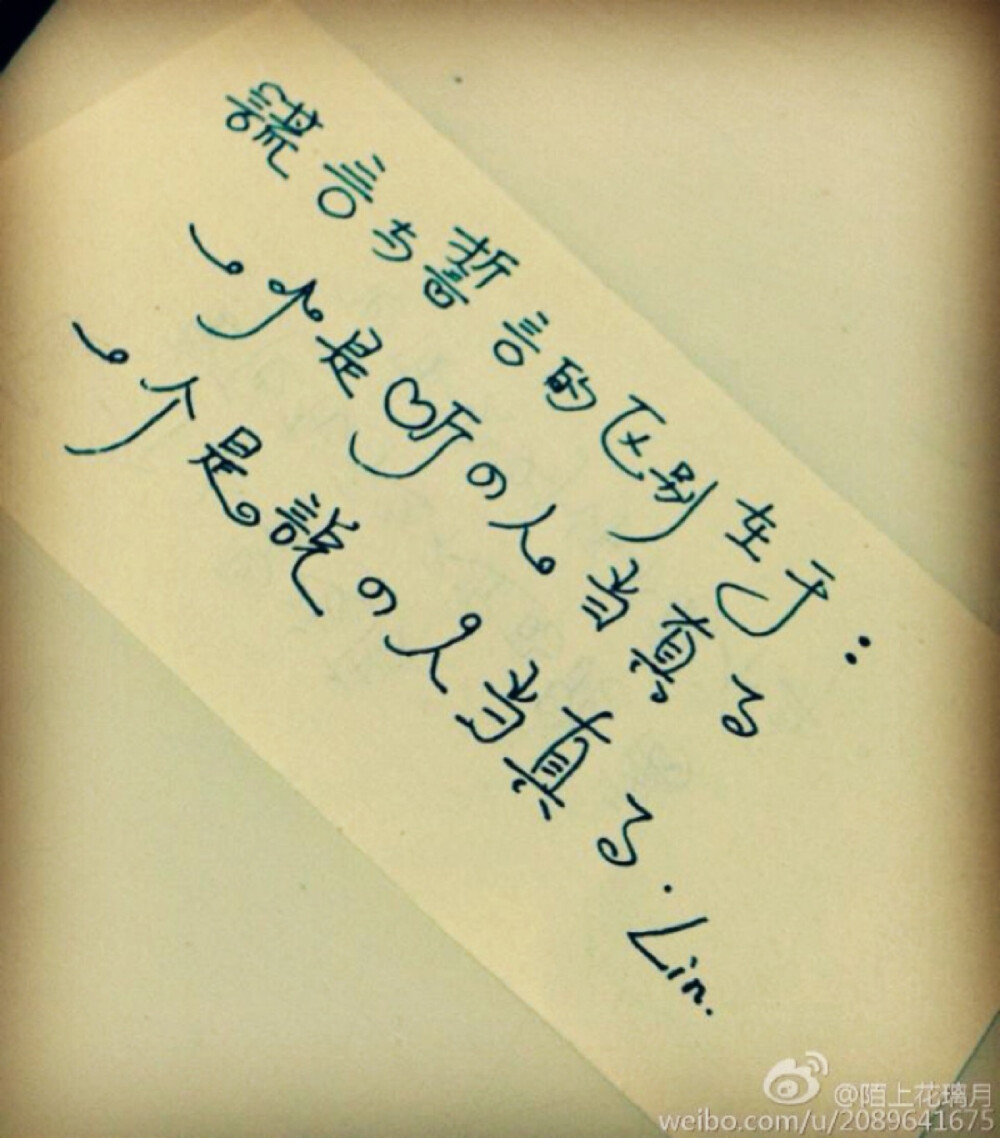 謊言与誓言的区别在于：
一个是听の人当真る
一个是說の人当真る.
Lin.
@陌上花璃月
weibo.com/u/2089641675